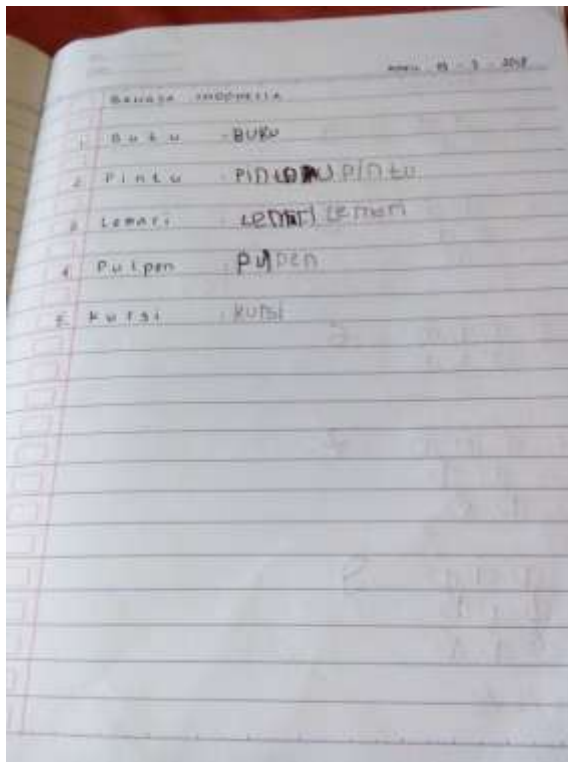 19 - 3 - 2018
BAHASA INDONESIA
1. Buku : BUKU
2. Pintu : Pintu
3. Lemari : Lemari Lemari
4. Pulpen : Pulpen
5. Kursi : kursi